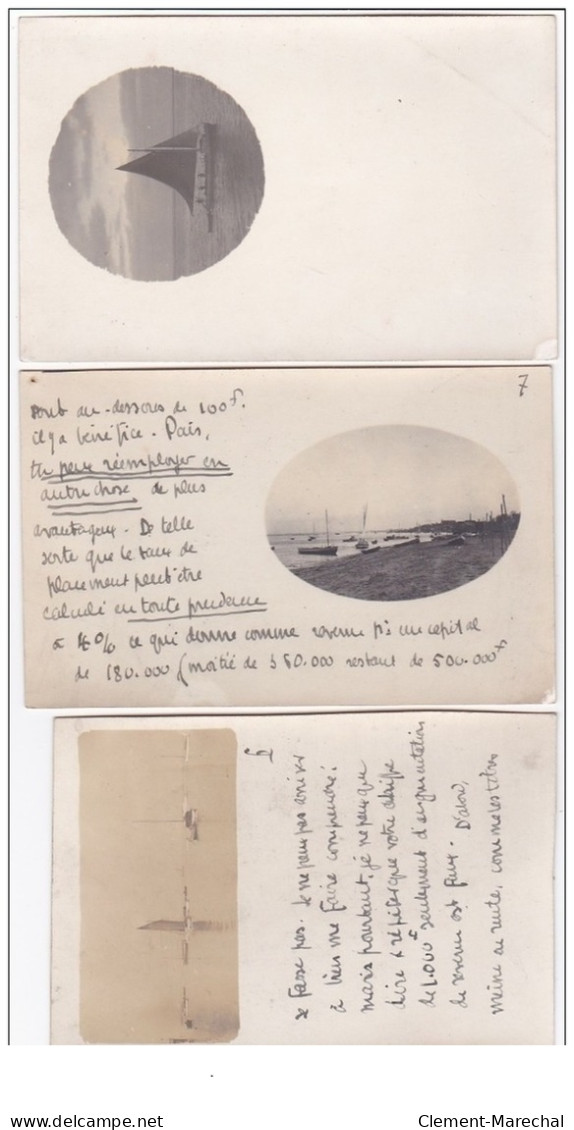 7
sont au-dessous de 100f.
il y a bénéfice. Puis,
tu peux réemployer en
autre chose de plus
avantageux. De telle
sorte que le taux de
placement peut être
calculé en toute prudence
à 4% ce qui donne comme revenu pr un capital
de 180.000 (moitié de 360.000 restant de 500.000f
6
se fasse pas. Je ne peux pas arriver
à bien me faire comprendre:
mais pourtant, je ne peux que
dire & répéter que votre chiffre
de 1.000f seulement d'augmentation
de revenu est faux. D'abord,
même au reste, comme les titres
delcampe.net
Clement-Marechal